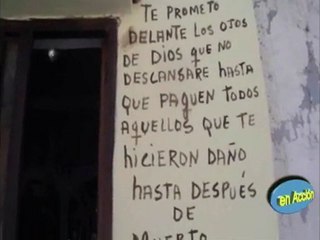 TE PROMETO
DELANTE LOS OJOS
DE DIOS QUE NO
DESCANSARE HASTA
QUE PAGUEN TODOS
AQUELLOS QUE TE
HICIERON DAÑO
HASTA DESPUÉS
DE
MUERTO
en Acción